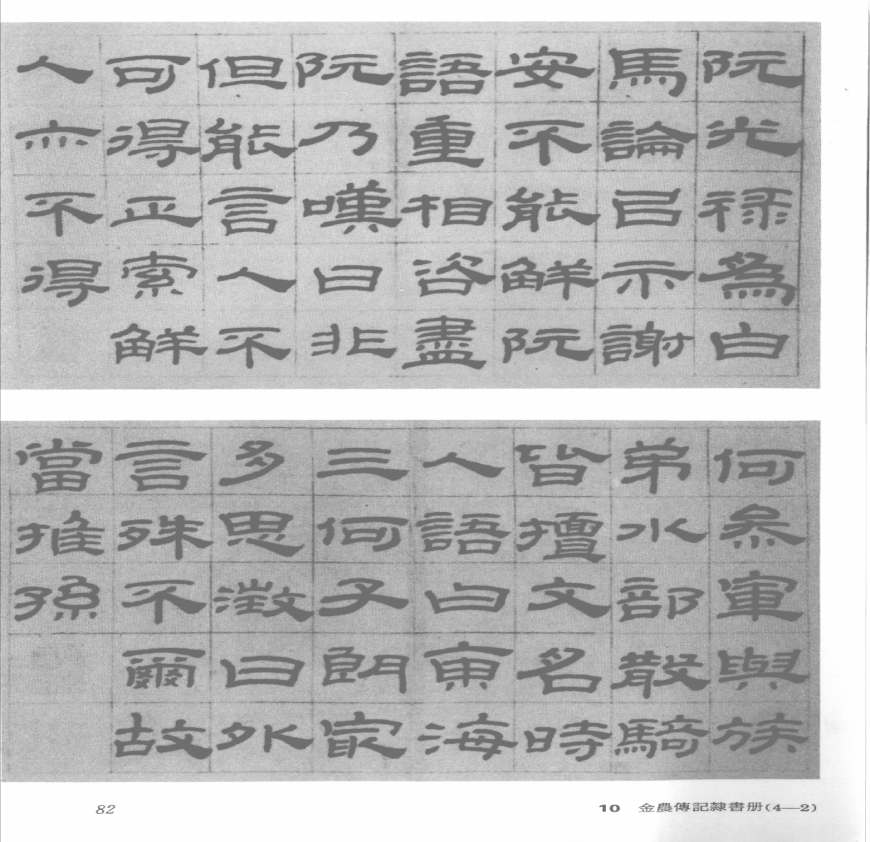 阮光祿爲白
馬論㠯示謝
安不能觧阮
語重相咨盡
阮乃嘆曰非
但能言人不
可得正索觧
人亦不得
何叅軍與族
弟水部散騎
皆擅文名時
人語曰東海
三何子朗冣
多思澂曰外
言殊不爾故
當推孫
82
10 金農傳記隸書册(4—2)